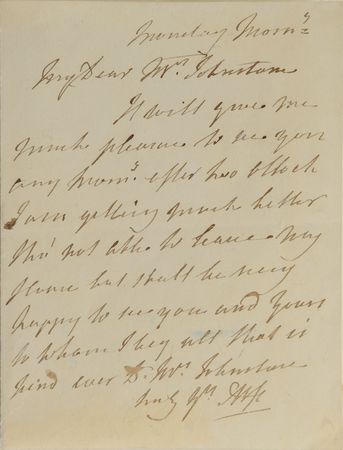 Monday Morng
My Dear Mrs Johnstone
It will give me
much pleasure to see you
any Morng after two o'Clock
I am getting much better
tho' not able to leave my
Home but shall be very
happy to see you and yours
to whom I beg all that is
kind ever Dr Mrs Johnstone
truly Yrs